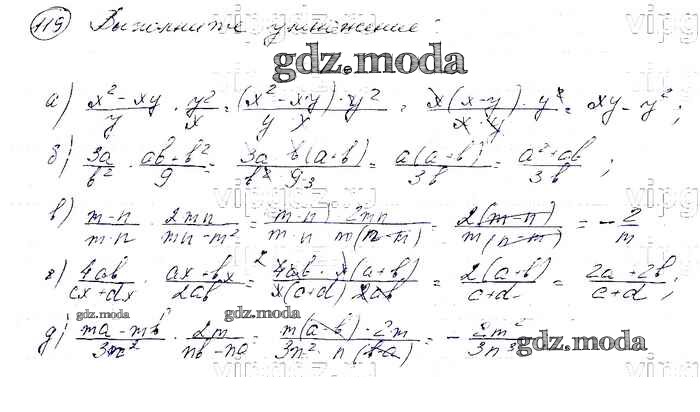 119 Выполните умножение:
gdz.moda
а) (x² - xy)/y · y²/x = ((x² - xy) · y²)/(y · x) = (x(x-y) · y²)/(x · y) = xy - y²;
б) 3a/b² · (ab + b²)/9 = (3a · b(a+b))/(b² · 9 3) = a(a+b)/3b = (a² + ab)/3b;
в) (m-n)/(m·n) · 2mn/(mn - m²) = ((m-n) · 2mn)/(m·n · m(n-m)) = 2(m-n)/m(n-m) = - 2/m
г) 4ab/(cx + dx) · (ax + bx)/2ab = (2 4ab · x(a+b))/(x(c+d) 2ab) = 2(a+b)/(c+d) = (2a + 2b)/(c+d);
gdz.moda gdz.moda
д) (ma - mb)/3n² · 2m/(nb - na) = (m(a-b) · 2m)/(3n² · n(b-a)) = - 2m²/3n³
gdz.moda